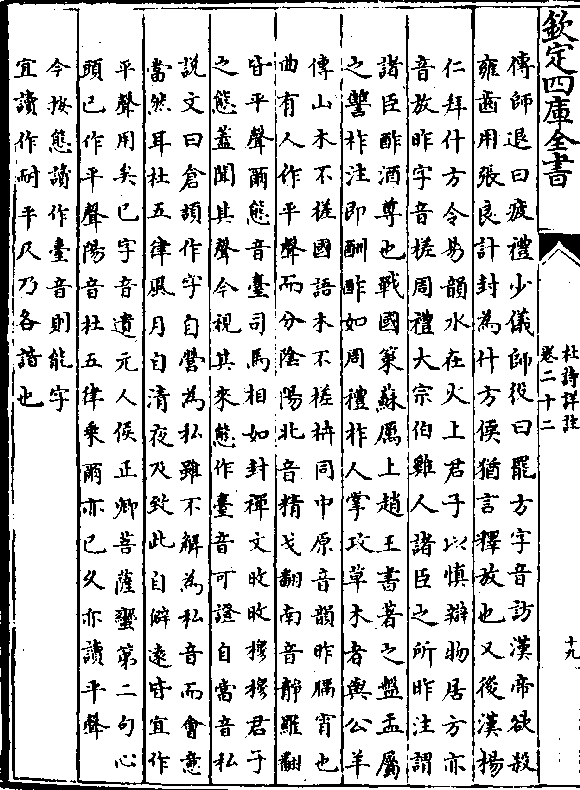 欽定四庫全書
杜詩詳註
卷二十二
十九
傳師退曰疲禮少儀師役曰罷方字音訪漢帝欲殺
雍齒用張良計封為什方侯猶言釋放也又後漢楊
仁拜什方令易韻水在火上君子以慎辯物居方亦
音放昨字音槎周禮大宗伯雞人諸臣之所昨注謂
諸臣酢酒尊也戰國策蘇厲上趙王書著之盤盂屬
之讐柞注即酬酢如周禮柞人掌攻草木者與公羊
傳山木不槎國語木不槎枿同中原音韻昨隅宵也
曲有人作平聲而分陰陽北音精戈翻南音靜羅翻
皆平聲爾態音臺司馬相如封禪文旼旼穆穆君子
之態蓋聞其聲今視其來態作臺音可證自當音私
説文曰倉頡作字自營為私雖不解為私音而會意
當然耳杜五律風月自清夜及致此自僻遠皆宜作
平聲用矣已字音遺元人侯正卿菩薩蠻第二句心
頭已作平聲陽音杜五律乘爾亦已久亦讀平聲
今按態讀作臺音則能字
宜讀作耐平仄乃各諧也